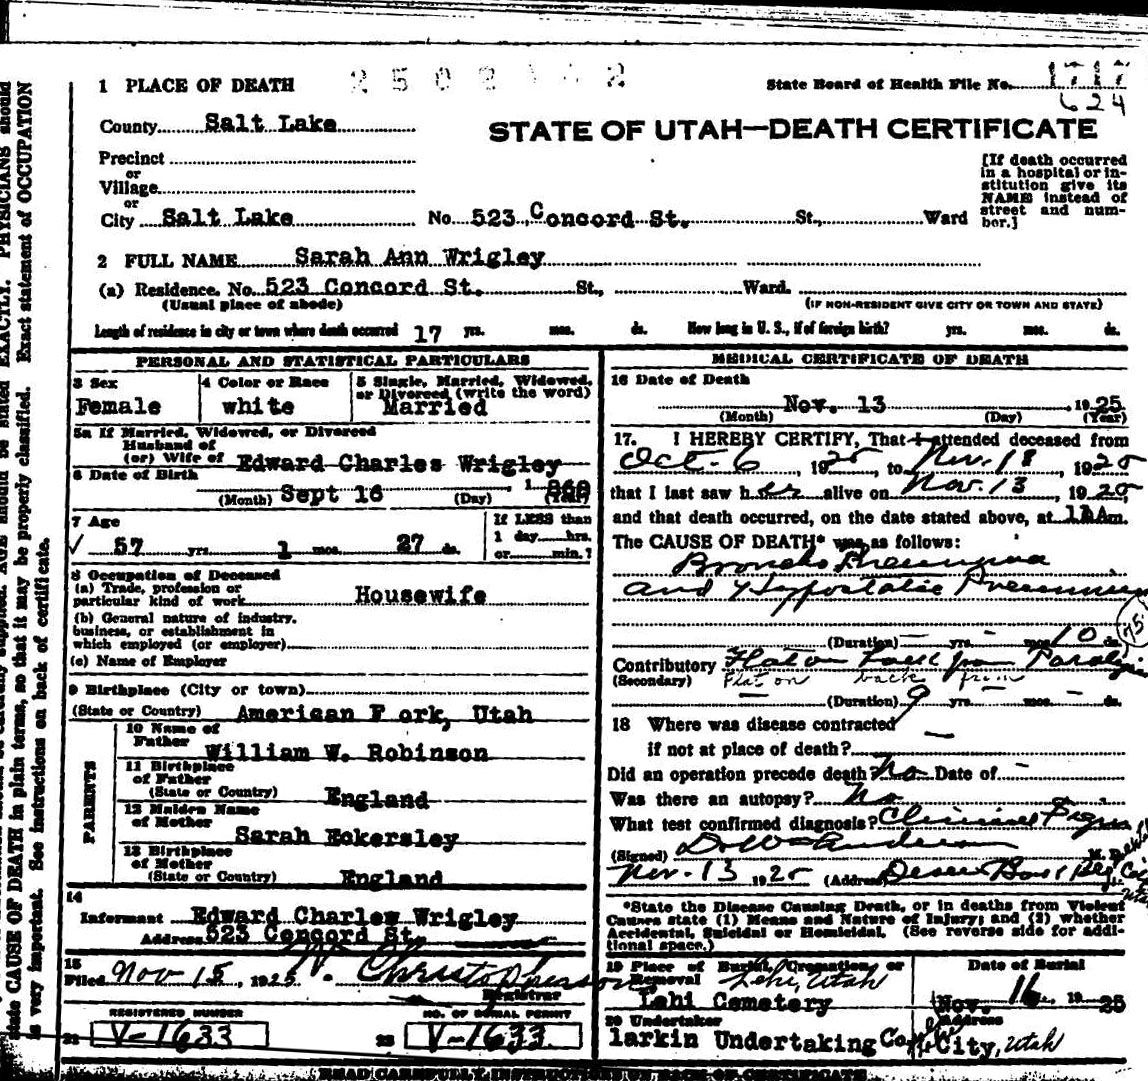 1 PLACE OF DEATH
State Board of Health File No. 1717
624
County Salt Lake
STATE OF UTAH—DEATH CERTIFICATE
Precinct
or
Village
or
City Salt Lake No. 523 Concord St. St., Ward
[If death occurred
in a hospital or in-
stitution give its
NAME instead of
street and num-
ber.]
2 FULL NAME Sarah Ann Wrigley
(a) Residence. No. 523 Concord St. St., Ward.
(Usual place of abode) (IF NON-RESIDENT GIVE CITY OR TOWN AND STATE)
Length of residence in city or town where death occurred 17 yrs. mos. ds. How long in U. S., if of foreign birth? yrs. mos. ds.
PERSONAL AND STATISTICAL PARTICULARS
3 Sex
Female
4 Color or Race
white
5 Single, Married, Widowed,
or Divorced (write the word)
Married
5a If Married, Widowed, or Divorced
Husband of
(or) Wife of Edward Charles Wrigley
6 Date of Birth
Sept 16
(Month) (Day) (Year)
7 Age
57 yrs. 1 mos. 27 ds.
If LESS than
1 day hrs.
or min.?
8 Occupation of Deceased
(a) Trade, profession or
particular kind of work Housewife
(b) General nature of industry,
business, or establishment in
which employed (or employer)
(c) Name of Employer
9 Birthplace (City or town)
(State or Country) American Fork, Utah
PARENTS
10 Name of
Father William W. Robinson
11 Birthplace
of Father
(State or Country) England
12 Maiden Name
of Mother Sarah Eckersley
13 Birthplace
of Mother
(State or Country) England
14
Informant Edward Charles Wrigley
Address 523 Concord St.
15
Filed Nov 15, 1925 W. Christopherson
Registrar
REGISTERED NUMBER
21 V-1633
NO. OF BURIAL PERMIT
22 V-1633
MEDICAL CERTIFICATE OF DEATH
16 Date of Death
Nov. 13 1925
(Month) (Day) (Year)
17. I HEREBY CERTIFY, That I attended deceased from
Oct. 6, 1925, to Nov. 1925
that I last saw her alive on Nov. 13, 1925,
and that death occurred, on the date stated above, at m.
The CAUSE OF DEATH* was as follows:
Broncho Pneumonia
and Hypostatic Pneumonia
75
(Duration) yrs. mos. 10 ds.
Contributory Flat on back from Paralysis
(Secondary) Flat on back from
(Duration) 9 yrs. mos. ds.
18 Where was disease contracted
if not at place of death?
Did an operation precede death No Date of
Was there an autopsy? No
What test confirmed diagnosis? Clinical
(Signed) M. D.
Nov. 13 1925 (Address)
*State the Disease Causing Death, or in deaths from Violent
Causes state (1) Means and Nature of Injury; and (2) whether
Accidental, Suicidal or Homicidal. (See reverse side for addi-
tional space.)
19 Place of Burial, Cremation, or
Removal Lehi, Utah
Lehi Cemetery
Date of Burial
Nov. 16 1925
20 Undertaker
larkin Undertaking Co
Address
City, Utah